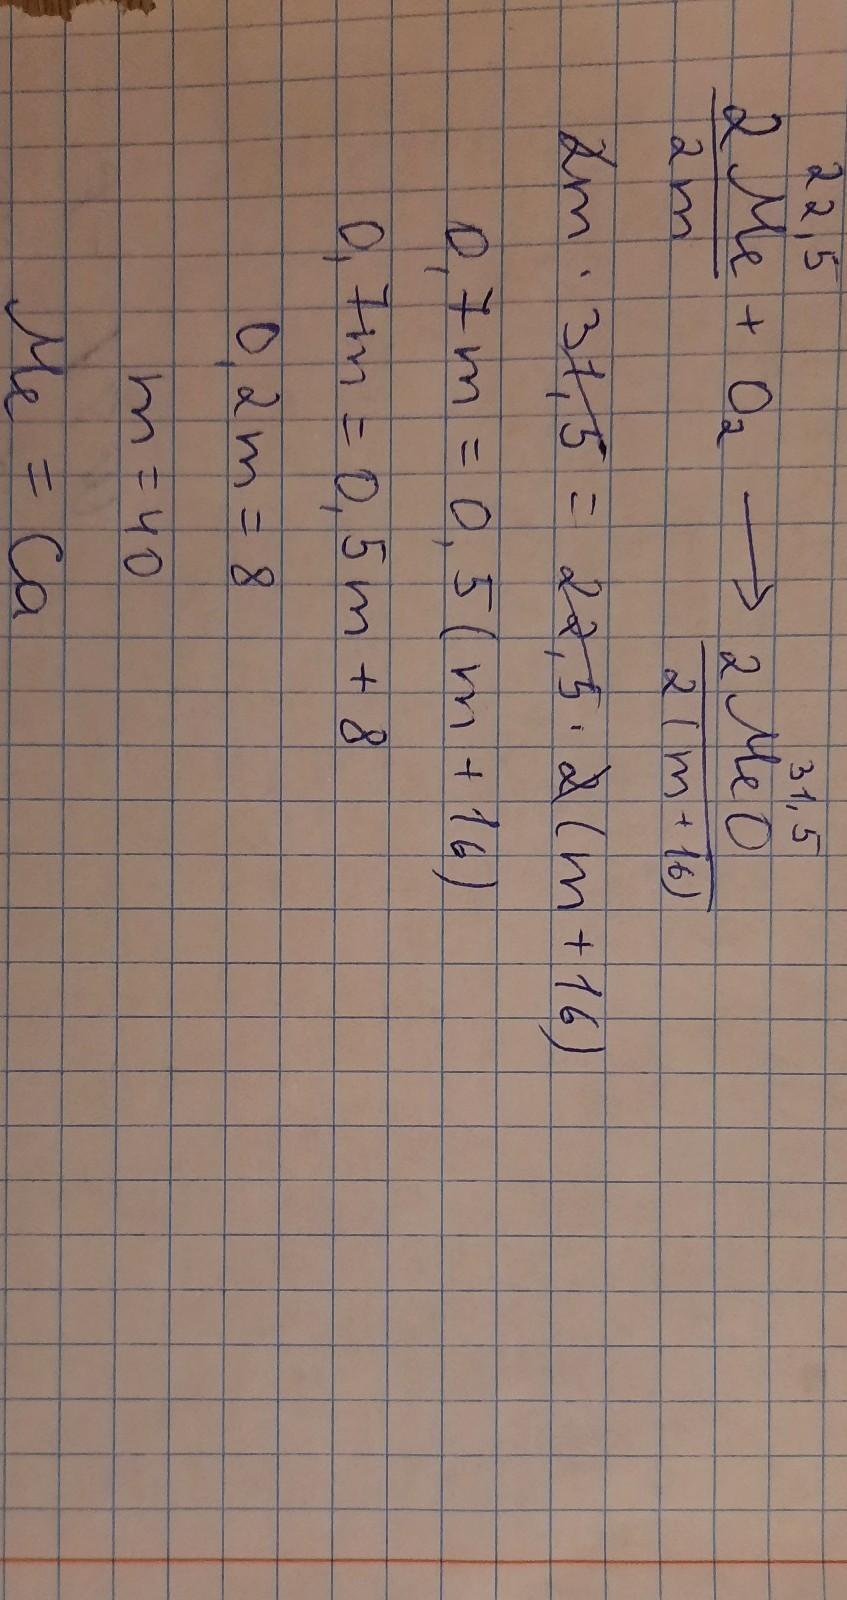 22,5 31,5
2Me + O₂ → 2MeO
2m 2(m+16)
2m · 31,5 = 22,5 · 2(m+16)
0,7m = 0,5(m+16)
0,7m = 0,5m + 8
0,2m = 8
m = 40
Me = Ca